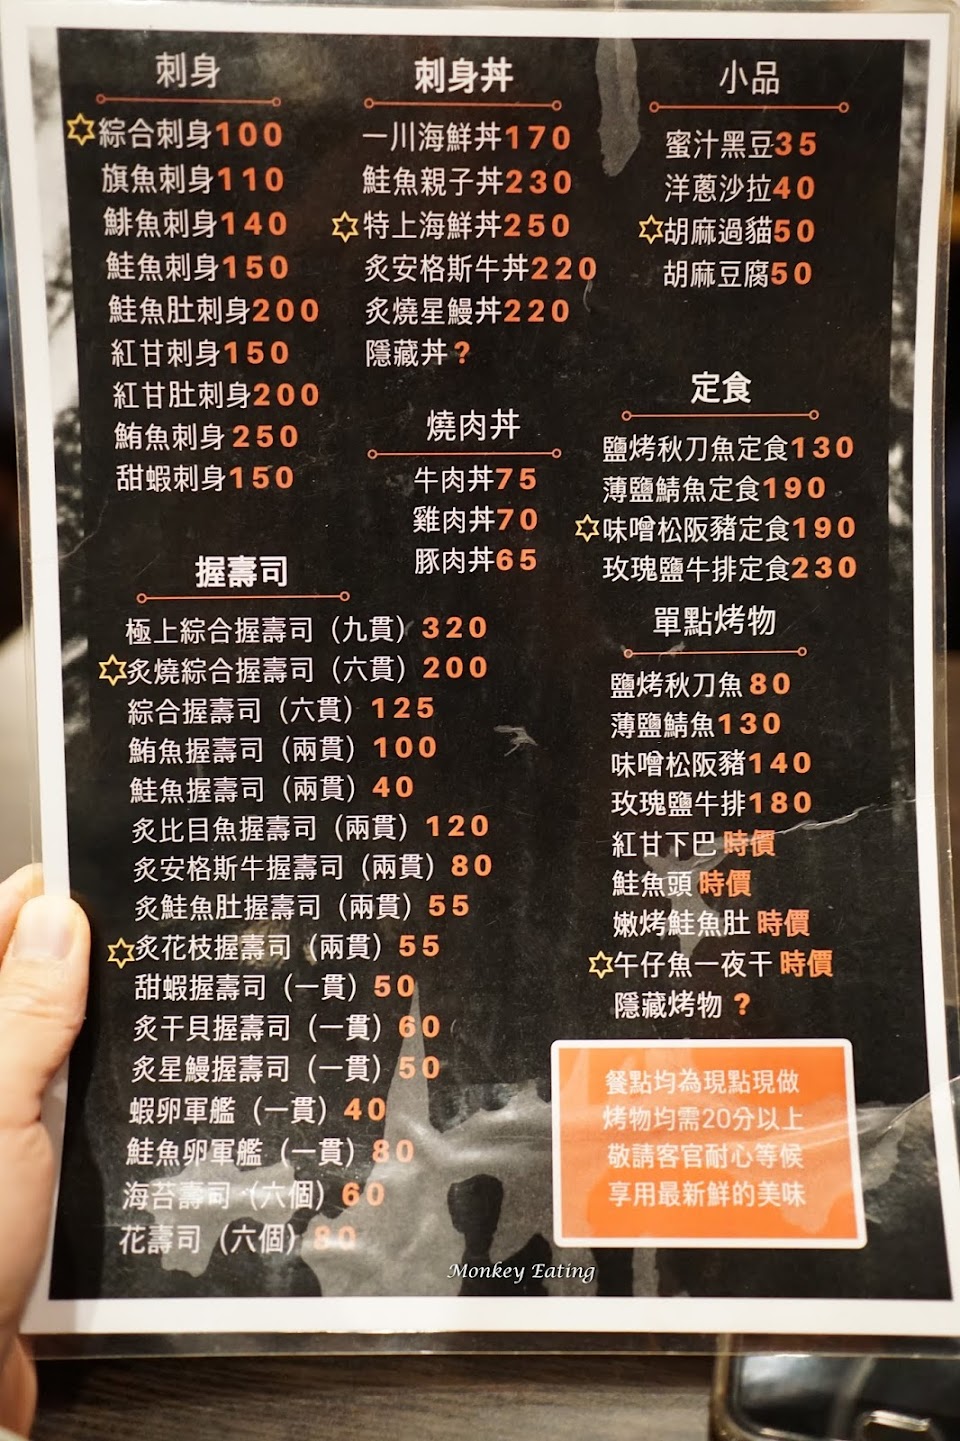 刺身
綜合刺身100
旗魚刺身110
鯡魚刺身140
鮭魚刺身150
鮭魚肚刺身200
紅甘刺身150
紅甘肚刺身200
鮪魚刺身250
甜蝦刺身150
刺身丼
一川海鮮丼170
鮭魚親子丼230
特上海鮮丼250
炙安格斯牛丼220
炙燒星鰻丼220
隱藏丼?
燒肉丼
牛肉丼75
雞肉丼70
豚肉丼65
小品
蜜汁黑豆35
洋蔥沙拉40
胡麻過貓50
胡麻豆腐50
定食
鹽烤秋刀魚定食130
薄鹽鯖魚定食190
味噌松阪豬定食190
玫瑰鹽牛排定食230
握壽司
極上綜合握壽司（九貫）320
炙燒綜合握壽司（六貫）200
綜合握壽司（六貫）125
鮪魚握壽司（兩貫）100
鮭魚握壽司（兩貫）40
炙比目魚握壽司（兩貫）120
炙安格斯牛握壽司（兩貫）80
炙鮭魚肚握壽司（兩貫）55
炙花枝握壽司（兩貫）55
甜蝦握壽司（一貫）50
炙干貝握壽司（一貫）60
炙星鰻握壽司（一貫）50
蝦卵軍艦（一貫）40
鮭魚卵軍艦（一貫）80
海苔壽司（六個）60
花壽司（六個）80
單點烤物
鹽烤秋刀魚80
薄鹽鯖魚130
味噌松阪豬140
玫瑰鹽牛排180
紅甘下巴 時價
鮭魚頭 時價
嫩烤鮭魚肚 時價
午仔魚一夜干 時價
隱藏烤物 ?
餐點均為現點現做
烤物均需20分以上
敬請客官耐心等候
享用最新鮮的美味
Monkey Eating